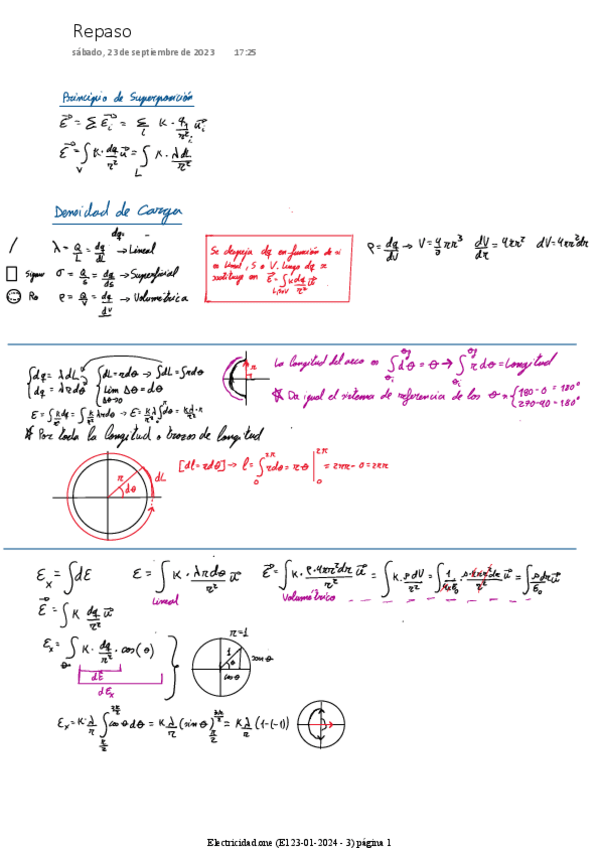 Repaso
sábado, 23 de septiembre de 2023 17:25
Principio de Superposición
E⃗ = Σ E⃗ᵢ = Σᵢ K · qᵢ/r²ᵢ u⃗ᵢ
E⃗ = ∫ᵥ K · dq/r² u⃗ = ∫_L K · λdL/r²
Densidad de Carga
dq:
λ = Q/L = dq/dL → Lineal
Sigma σ = Q/S = dq/dS → Superficial
Ro ρ = Q/V = dq/dV → Volumétrica
Se despeja dq en función de si
es lineal, S o V. Luego dq se
sustituye en E⃗ = ∫_{L,S o V} K dq/r² u⃗
ρ = dq/dV → V = 4/3 πr³ dV/dr = 4πr² dV = 4πr²dr
∫dq = λdL
dq = λrdθ
∫dL = rdθ → ∫dL = ∫rdθ
Lim Δθ = dθ
Δθ→0
★ Por toda la longitud o trozos de longitud
La longitud del arco es ∫dθ = θ → ∫rdθ = Longitud
★ Da igual el sistema de referencia de los θ = {180-0 = 180°
270-90 = 180°
r
dθ
dL
[dl = rdθ] → l = ∫₀^{2π} rdθ = rθ |₀^{2π} = 2πr - 0 = 2πr
Eₓ = ∫dE
E = ∫ K · λrdθ/r² u⃗
Lineal
E⃗ = ∫ K · ρ·4πr²dr/r² u⃗ = ∫ K·ρdV/r² = ∫ 1/4πε₀ · ρ·4πr²dr/r² u⃗ = ∫ ρdr/ε₀ u⃗
Volumétrico
E⃗ = ∫ K dq/r² u⃗
Eₓ = ∫ K · dq/r² · cos(θ)
dE
dEₓ
r=1
1
θ
sen θ
cos θ
Eₓ = K·λ/r ∫_{π/2}^{3π/2} cos θ dθ = K λ/r (sin θ)_{π/2}^{3π/2} = K λ/r (1-(-1))
Electricidad.one (E123-01-2024 - 3) página 1